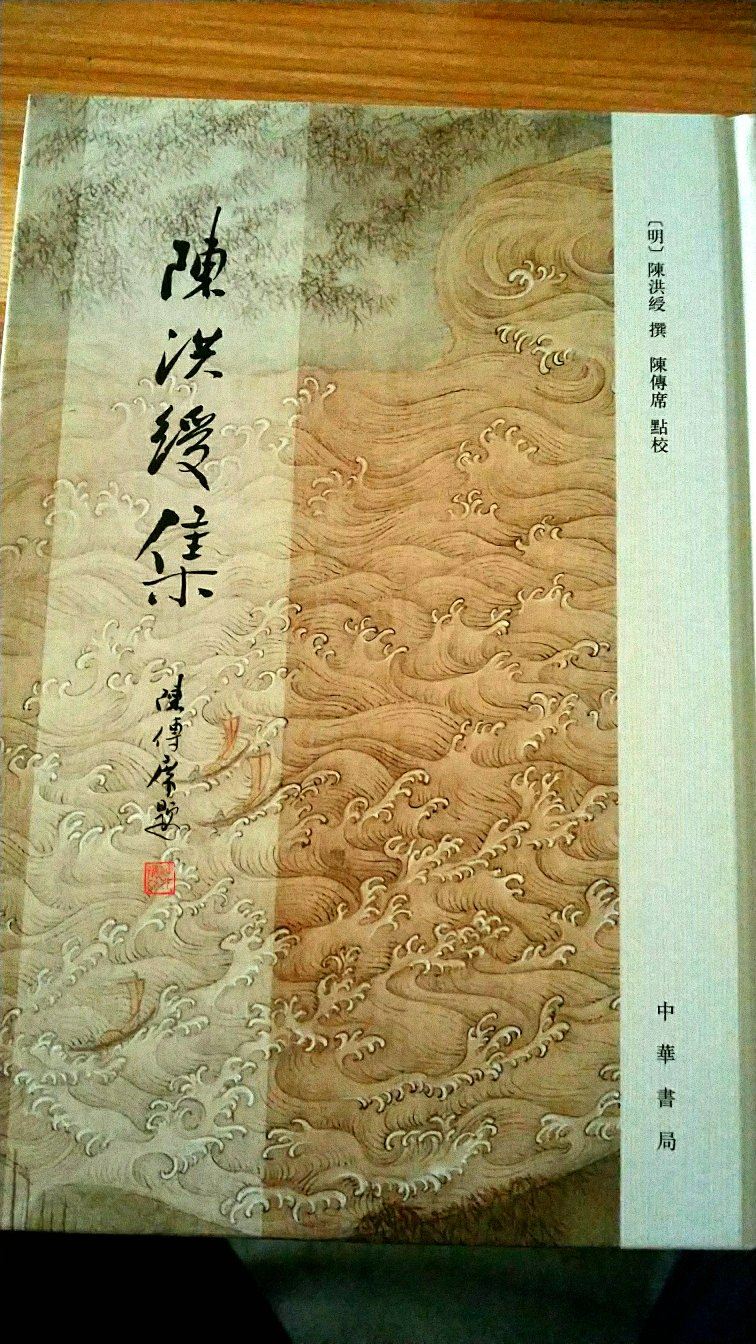 陳洪綬集
陳傳席題
〔明〕陳洪綬 撰 陳傳席 點校
中華書局